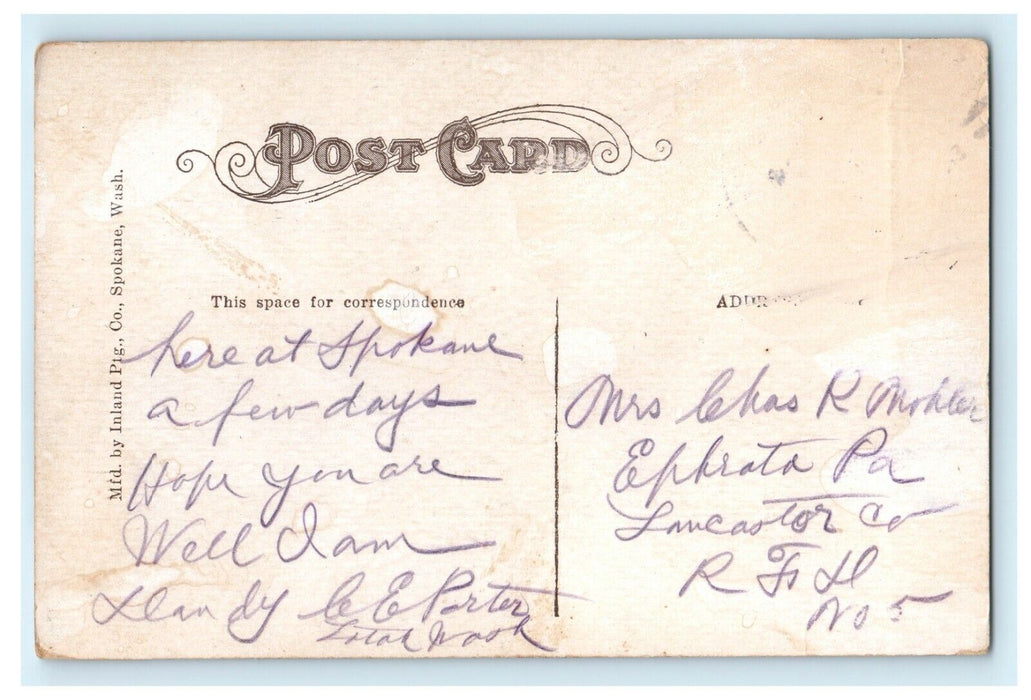 POST CARD
Mfd. by Inland Ptg., Co., Spokane, Wash.
This space for correspondence
here at Spokane
a few days
Hope you are
Well I am
Dandy C E Porter
Latah Wash
Mrs Chas R Mohler
Ephrata Pa
Lancaster Co
R F D
No 5